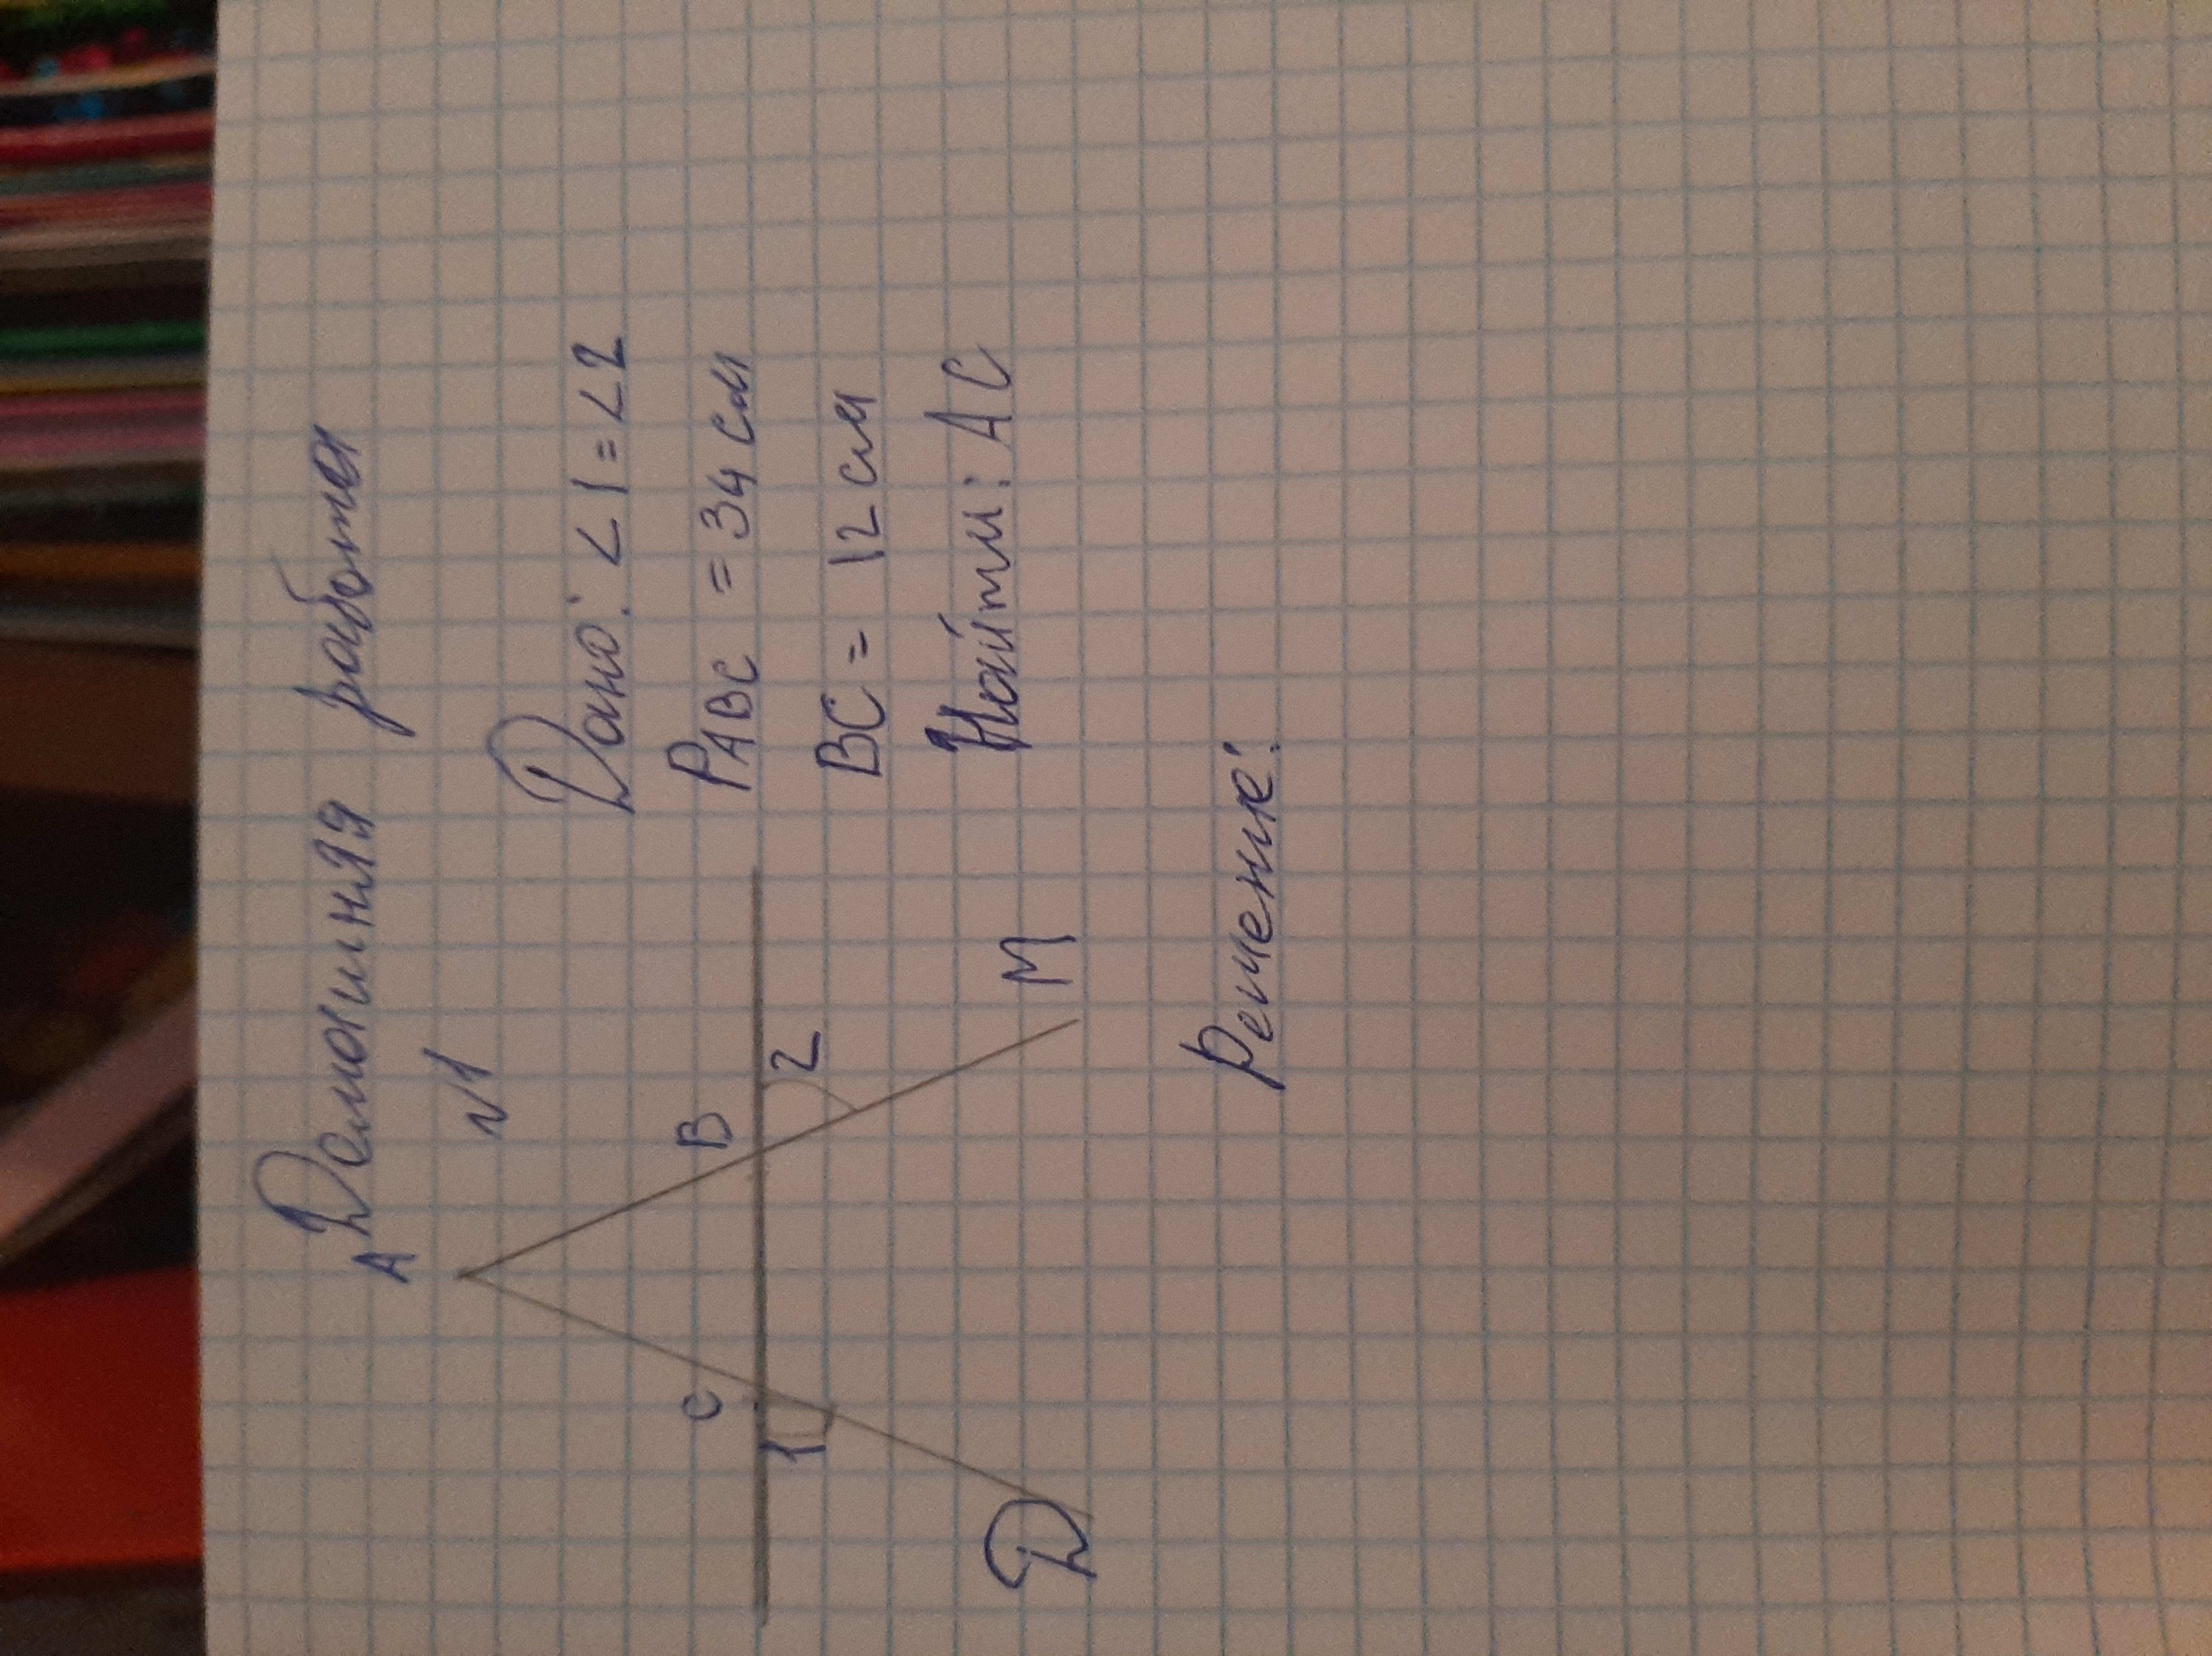 Домашняя работа
№1
A
Дано: ∠1 = ∠2
P ABC = 34 см
BC = 12 см
Найти: AC
C
B
1
2
D
M
Решение: